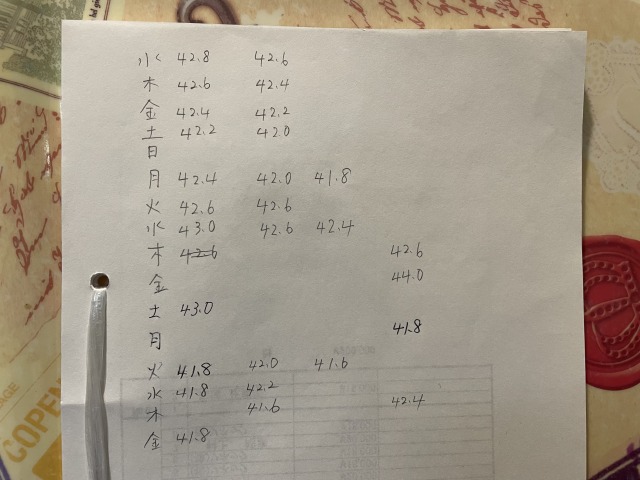 水 42.8 42.6
木 42.6 42.4
金 42.4 42.2
土 42.2 42.0
日
月 42.4 42.0 41.8
火 42.6 42.6
水 43.0 42.6 42.4
木 42.6 42.6
金 44.0
土 43.0
月 41.8
火 41.8 42.0 41.6
水 41.8 42.2
木 41.6 42.4
金 41.8
COPEN